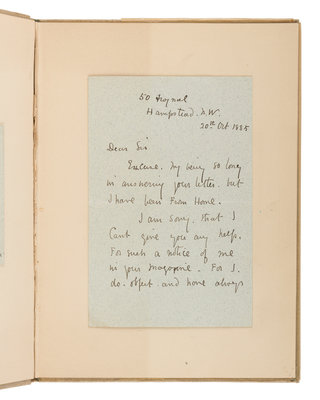 50 Frognal
Hampstead. N.W.
20th Oct 1885
Dear Sir
Excuse. my being so long
in answering your letter. but
I have been From Home.
I am sorry, that I
Cant give you any help.
For such a notice of me
in your Magazine. For I.
do. object. and have always